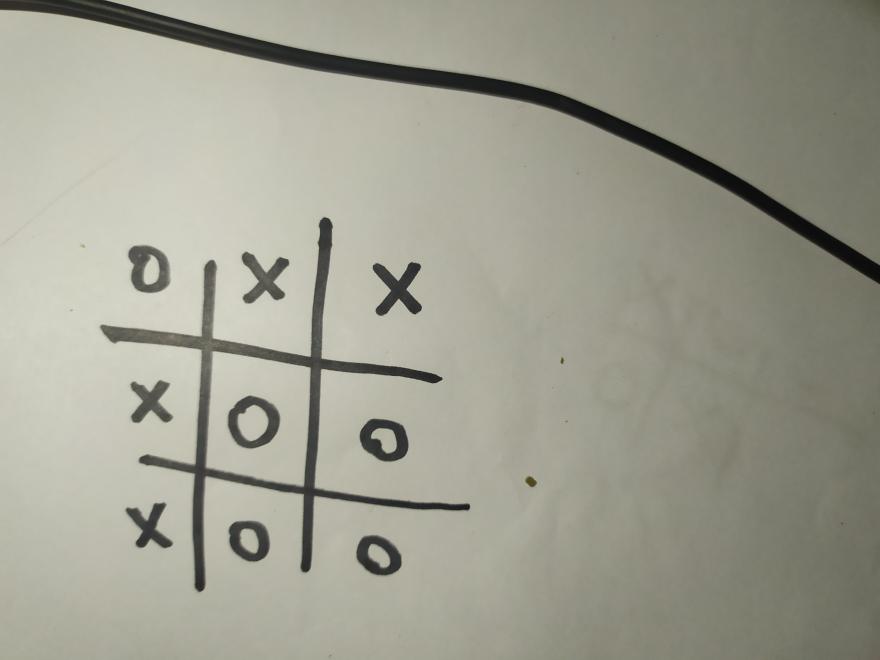 O X X
X O O
X O O